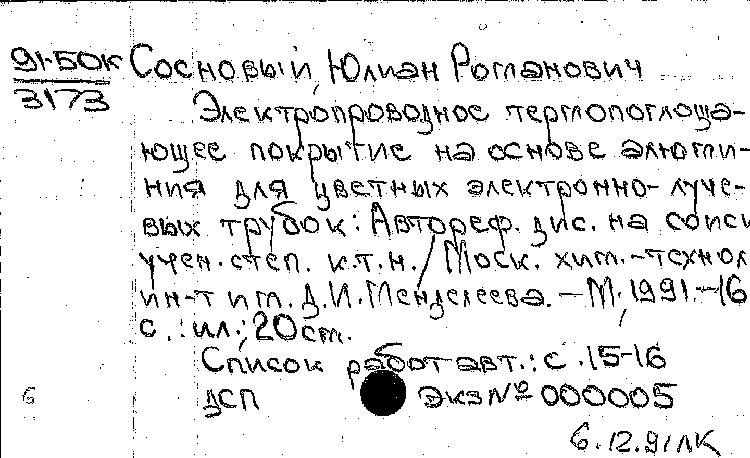 91-БОК Сосновый, Юлиан Романович
3173
Электропроводное термопоглоща-
ющее покрытие на основе алюми-
ния для цветных электронно-луче-
вых трубок: Автореф. дис. на соиск
учен. степ. к.т.н. / Моск. хим.-технол
ин-т им. Д.И. Менделеева. — М., 1991.-16
с.: ил.; 20 см.
Список работ авт.: с. 15-16
6 ДСП Экз № 000005
6.12.91 ЛК